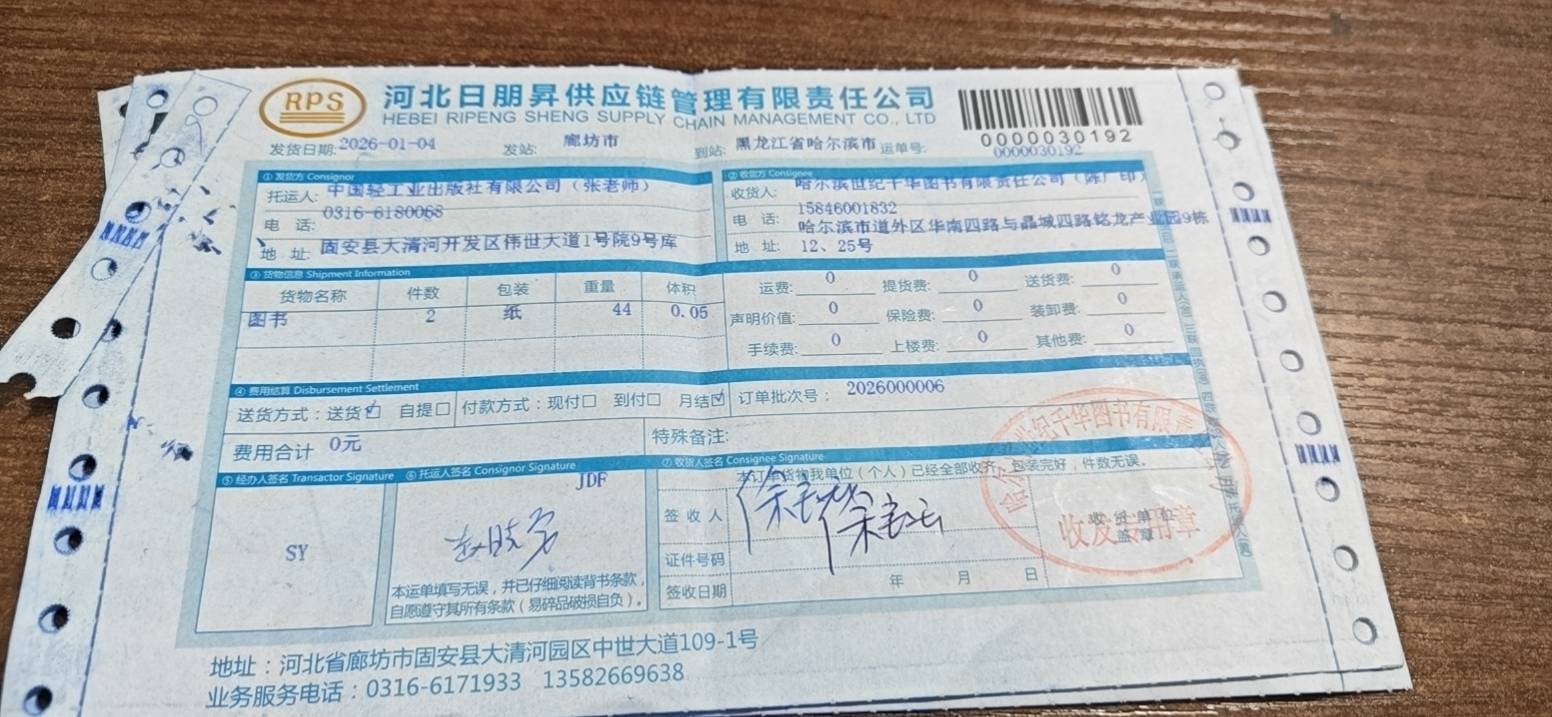 RPS
河北日朋昇供应链管理有限责任公司
HEBEI RIPENG SHENG SUPPLY CHAIN MANAGEMENT CO., LTD
0000030192
发货日期: 2026-01-04 发站: 廊坊市 到站: 黑龙江省哈尔滨市 运单号: 0000030192
① 发货方 Consignor
托运人: 中国轻工业出版社有限公司（张老师）
电 话: 0316-6180068
地 址: 固安县大清河开发区伟世大道1号院9号库
② 收货方 Consignee
收货人: 哈尔滨世纪千华图书有限责任公司（陈广印）
电 话: 15846001832
地 址: 哈尔滨市道外区华南四路与晶城四路铭龙产业园9栋
12、25号
③ 货物信息 Shipment Information
货物名称 件数 包装 重量 体积
图书 2 纸 44 0.05
运费: 0 提货费: 0 送货费: 0
声明价值: 0 保险费: 0 装卸费: 0
手续费: 0 上楼费: 0 其他费: 0
④ 费用结算 Disbursement Settlement
送货方式：送货☑ 自提☐ 付款方式：现付☐ 到付☐ 月结☑ 订单批次号： 2026000006
费用合计 0元 特殊备注:
⑤ 经办人签名 Transactor Signature
SY
⑥ 托运人签名 Consignor Signature
JDF
本运单填写无误，并已仔细阅读背书条款，
自愿遵守其所有条款（易碎品破损自负）。
⑦ 收货人签名 Consignee Signature
本订单货物我单位（个人）已经全部收齐，包装完好，件数无误。
签 收 人
证件号码
签收日期 年 月 日
收货单位
盖章
世纪千华图书有限责
收发专用章
地址：河北省廊坊市固安县大清河园区中世大道109-1号
业务服务电话：0316-6171933 13582669638